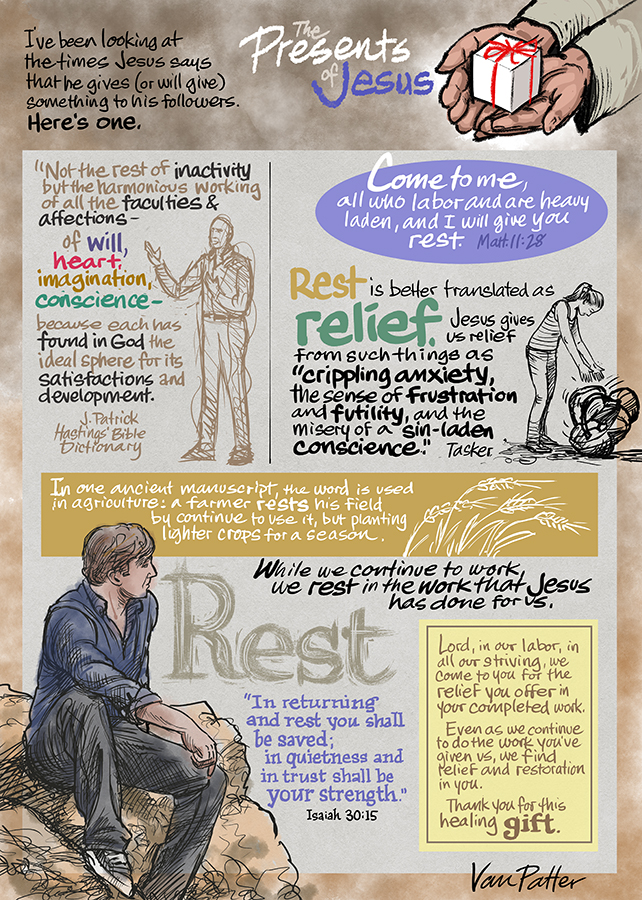 I've been looking at
the times Jesus says
that he gives (or will give)
something to his followers.
Here's one.
The
Presents
of
Jesus
"Not the rest of inactivity
but the harmonious working
of all the faculties &
affections-
of will,
heart,
imagination,
conscience-
because each has
found in God the
ideal sphere for its
satisfactions and
development.
J. Patrick
Hastings' Bible
Dictionary
Come to me,
all who labor and are heavy
laden, and I will give you
rest. Matt. 11:28
Rest is better translated as
relief. Jesus gives
us relief
from such things as
"crippling anxiety,
the sense of frustration
and futility, and the
misery of a sin-laden
conscience." Tasker
In one ancient manuscript, the word is used
in agriculture: a farmer rests his field
by continue to use it, but planting
lighter crops for a season.
While we continue to work,
we rest in the work that Jesus
has done for us.
Rest
"In returning
and rest you shall
be saved;
in quietness and
in trust shall be
your strength."
Isaiah 30:15
Lord, in our labor, in
all our striving, we
come to you for the
relief you offer in
your completed work.
Even as we continue
to do the work you've
given us, we find
relief and restoration
in you.
Thank you for this
healing gift.
VanPatter